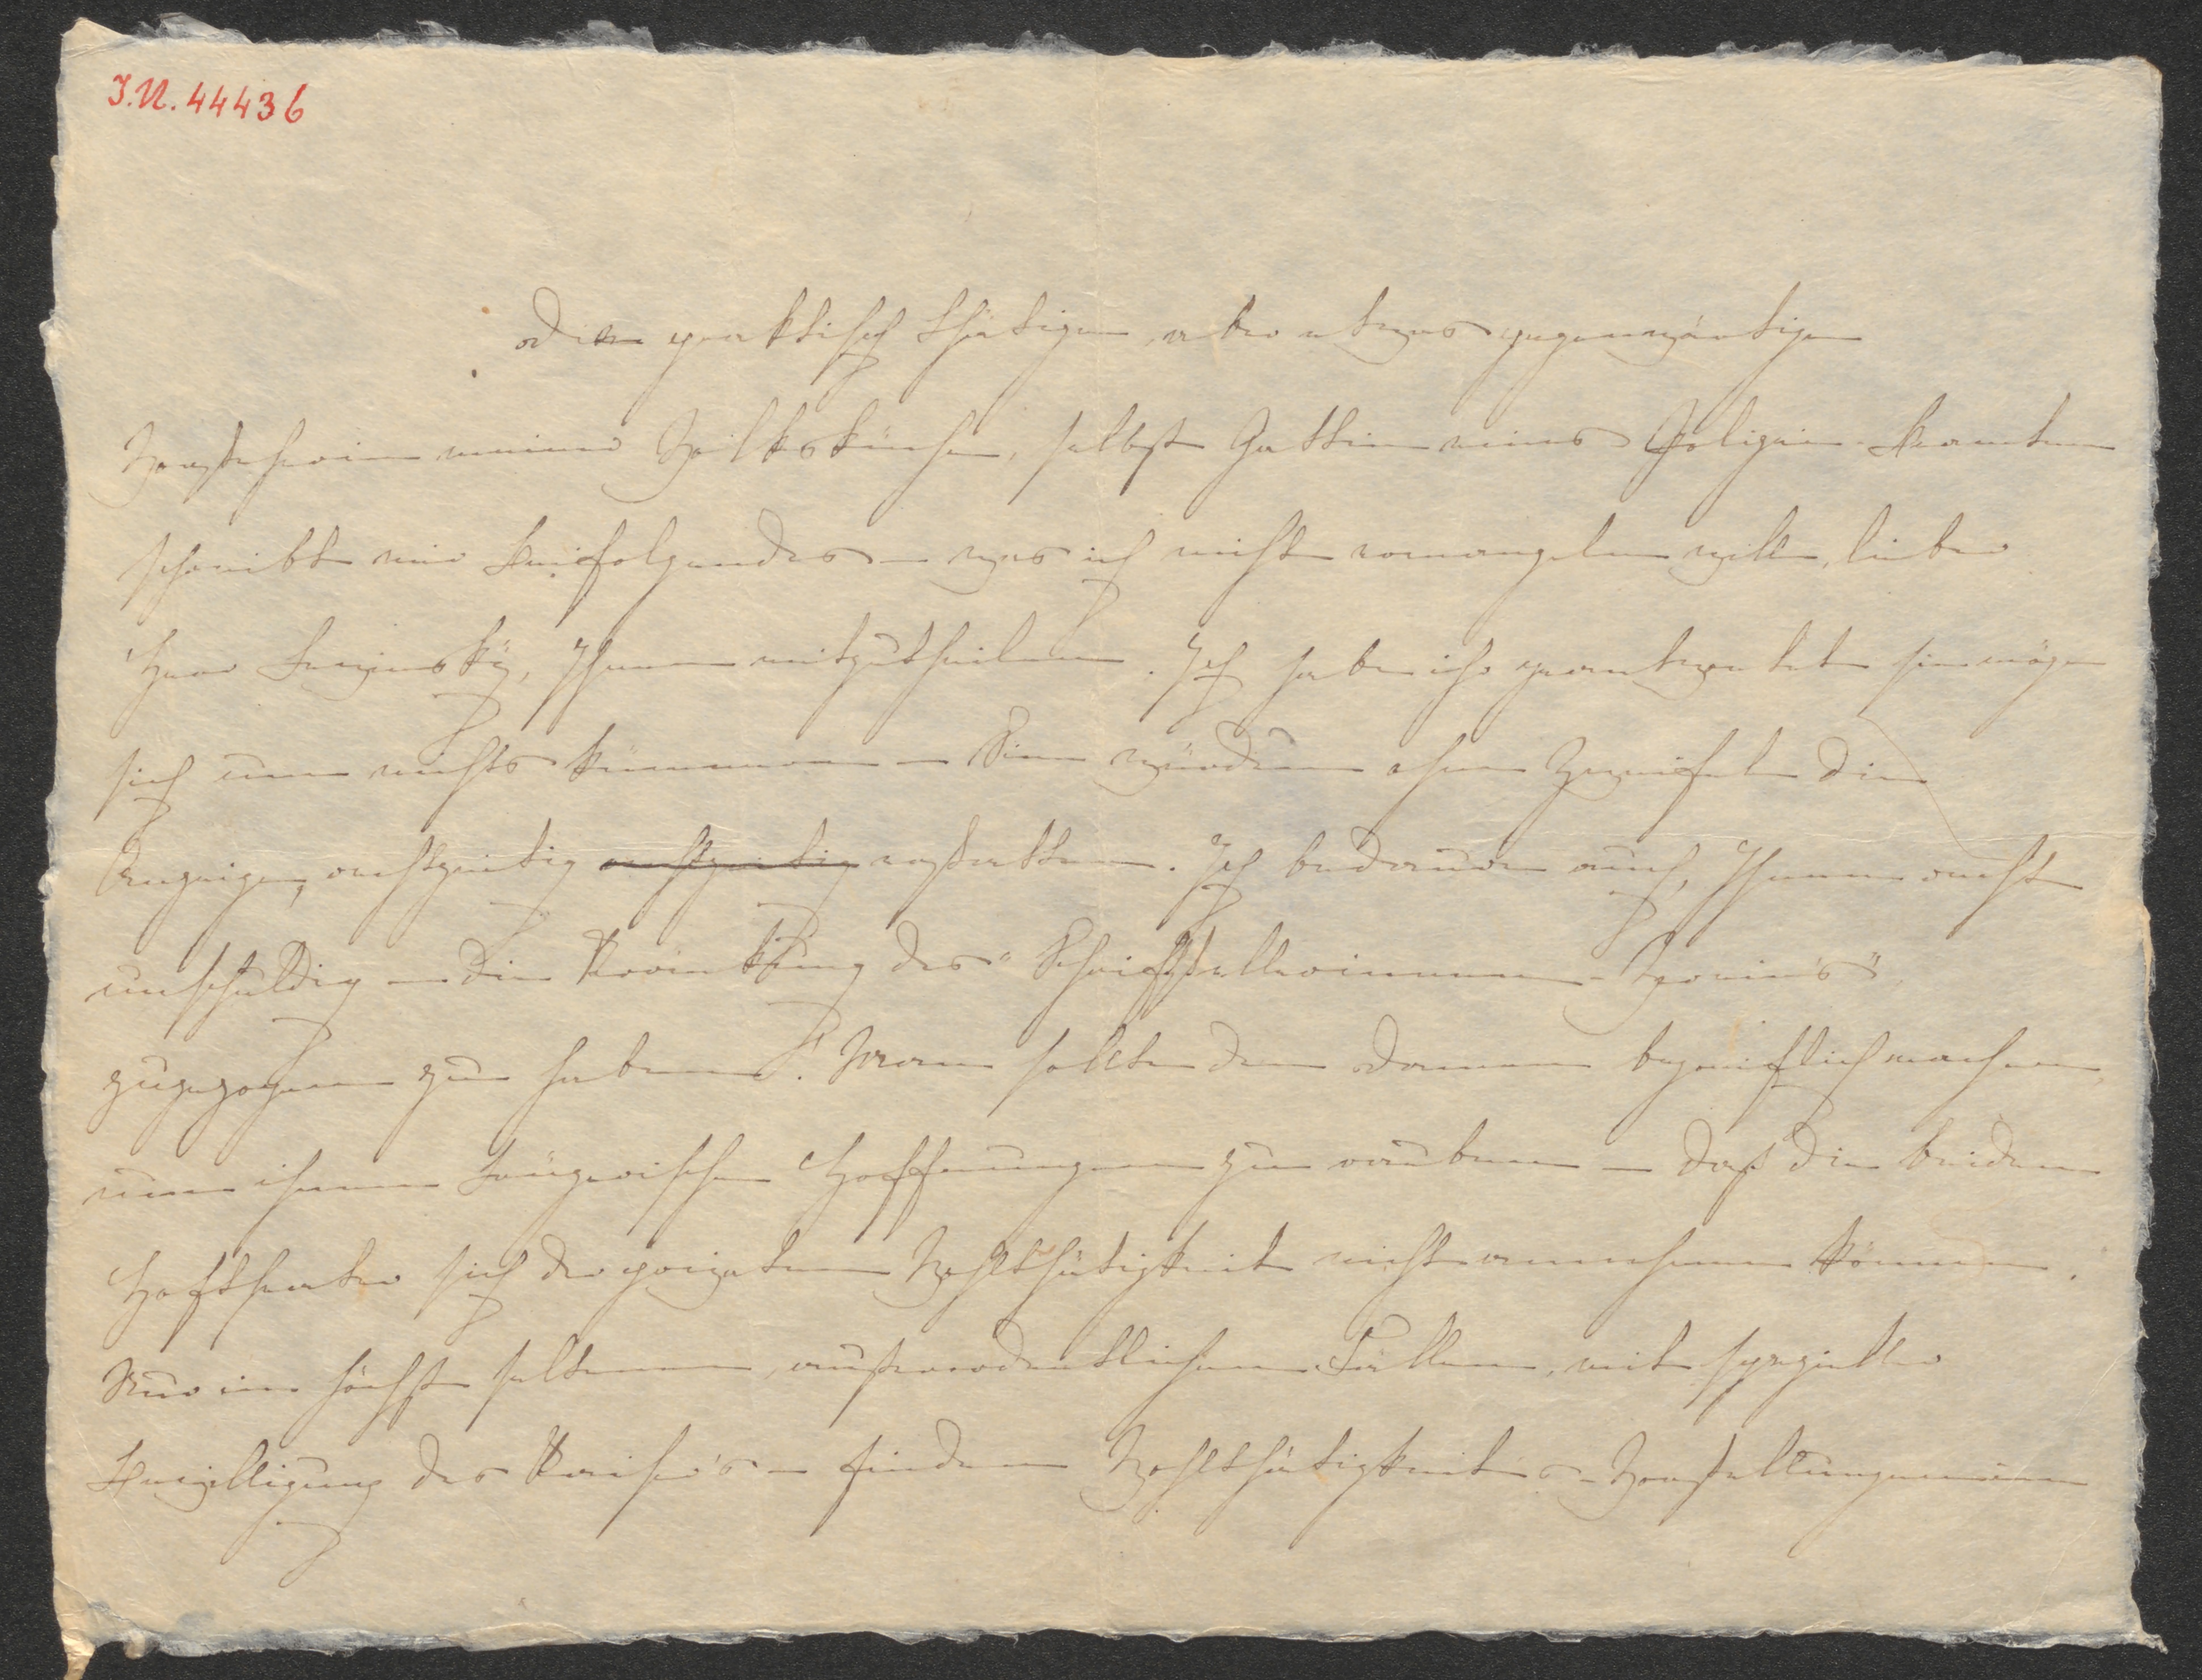 I.N. 44436
Die praktisch thätige, aber etwas gegenwärtige
Vorsteherin meiner Volksküchen, selbst Gattin eines Polizei-Beamten
schreibt mir Beifolgendes – was ich nicht ermangeln will, lieber
Herr Lewinsky, Ihnen mitzutheilen. Ich habe ihr geantwortet sie möge
sich um nichts kümmern – Sie würden ohne Zweifel die
Anzeige, rechtzeitig rechtzeitig erstatten. Ich bedaure auch, Ihnen recht
unschuldig – die Kränkung des "Schriftstellerinnen-Verein's"
zugezogen zu haben. Man sollte den Damen begreiflich machen,
um ihnen trügerische Hoffnungen zu rauben – daß die beiden
Hoftheater sich der privaten Wohlthätigkeit nicht annehmen können.
Nur in höchst seltenen, außerordentlichen Fällen, mit spezieller
Bewilligung des Kaiser's – finden Wohlthätigkeits-Vorstellungen in